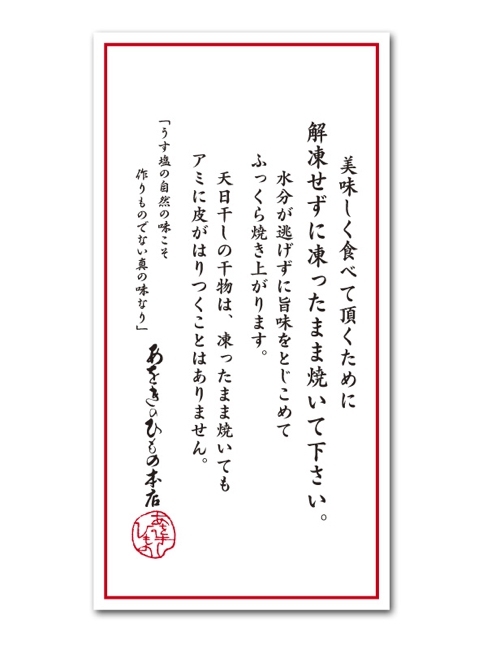 美味しく食べて頂くために
解凍せずに凍ったまま焼いて下さい。
水分が逃げずに旨味をとじこめて
ふっくら焼き上がります。
天日干しの干物は、凍ったまま焼いても
アミに皮がはりつくことはありません。
「うす塩の自然の味こそ
作りものでない真の味なり」
あをきのひもの本店